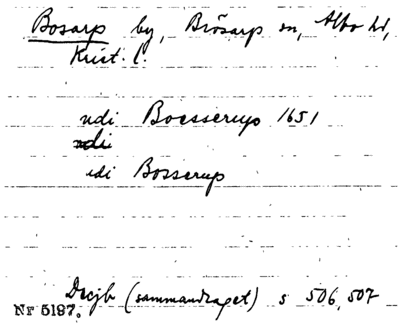 Bosarp by, Brösarp sn, Albo hd,
Krist. l.
udi Boesserup 1651
udi
idi Bosserup
Dscjb (sammandraget) s 506, 507
Nr 5197.